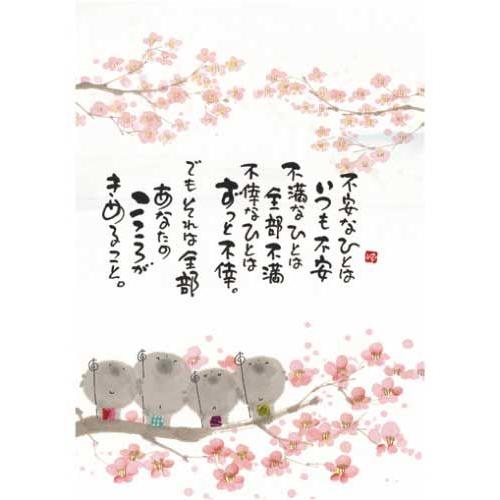 不安なひとは
いつも不安
不満なひとは
全部不満
不倖なひとは
ずっと不倖。
でもそれは全部
あなたの
こころが
きめること。